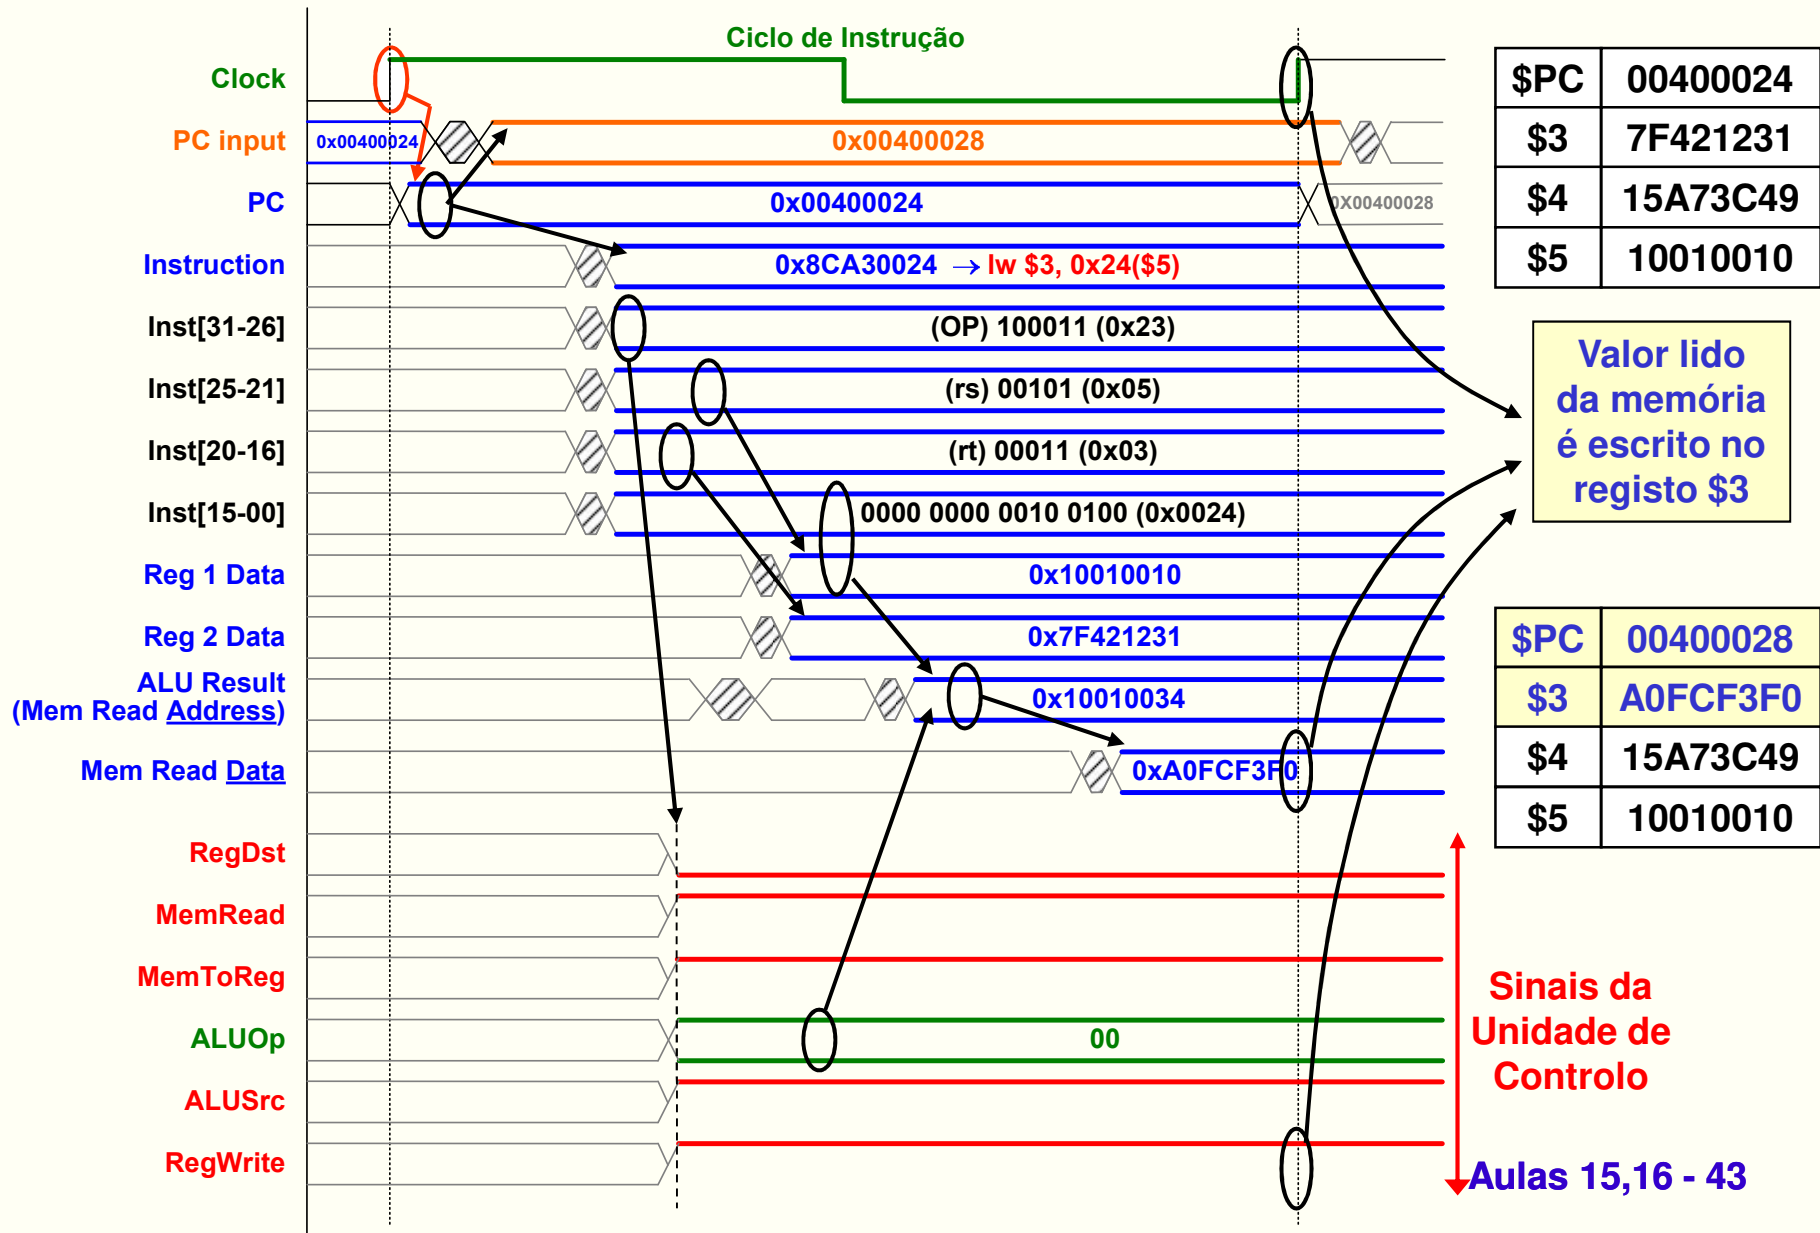 Ciclo de Instrução
Clock
PC input 0x00400024 0x00400028
PC 0x00400024 0X00400028
Instruction 0x8CA30024 → lw $3, 0x24($5)
Inst[31-26] (OP) 100011 (0x23)
Inst[25-21] (rs) 00101 (0x05)
Inst[20-16] (rt) 00011 (0x03)
Inst[15-00] 0000 0000 0010 0100 (0x0024)
Reg 1 Data 0x10010010
Reg 2 Data 0x7F421231
ALU Result
(Mem Read Address) 0x10010034
Mem Read Data 0xA0FCF3F0
RegDst
MemRead
MemToReg
ALUOp 00
ALUSrc
RegWrite
$PC 00400024
$3 7F421231
$4 15A73C49
$5 10010010
Valor lido
da memória
é escrito no
registo $3
$PC 00400028
$3 A0FCF3F0
$4 15A73C49
$5 10010010
Sinais da
Unidade de
Controlo
Aulas 15,16 - 43